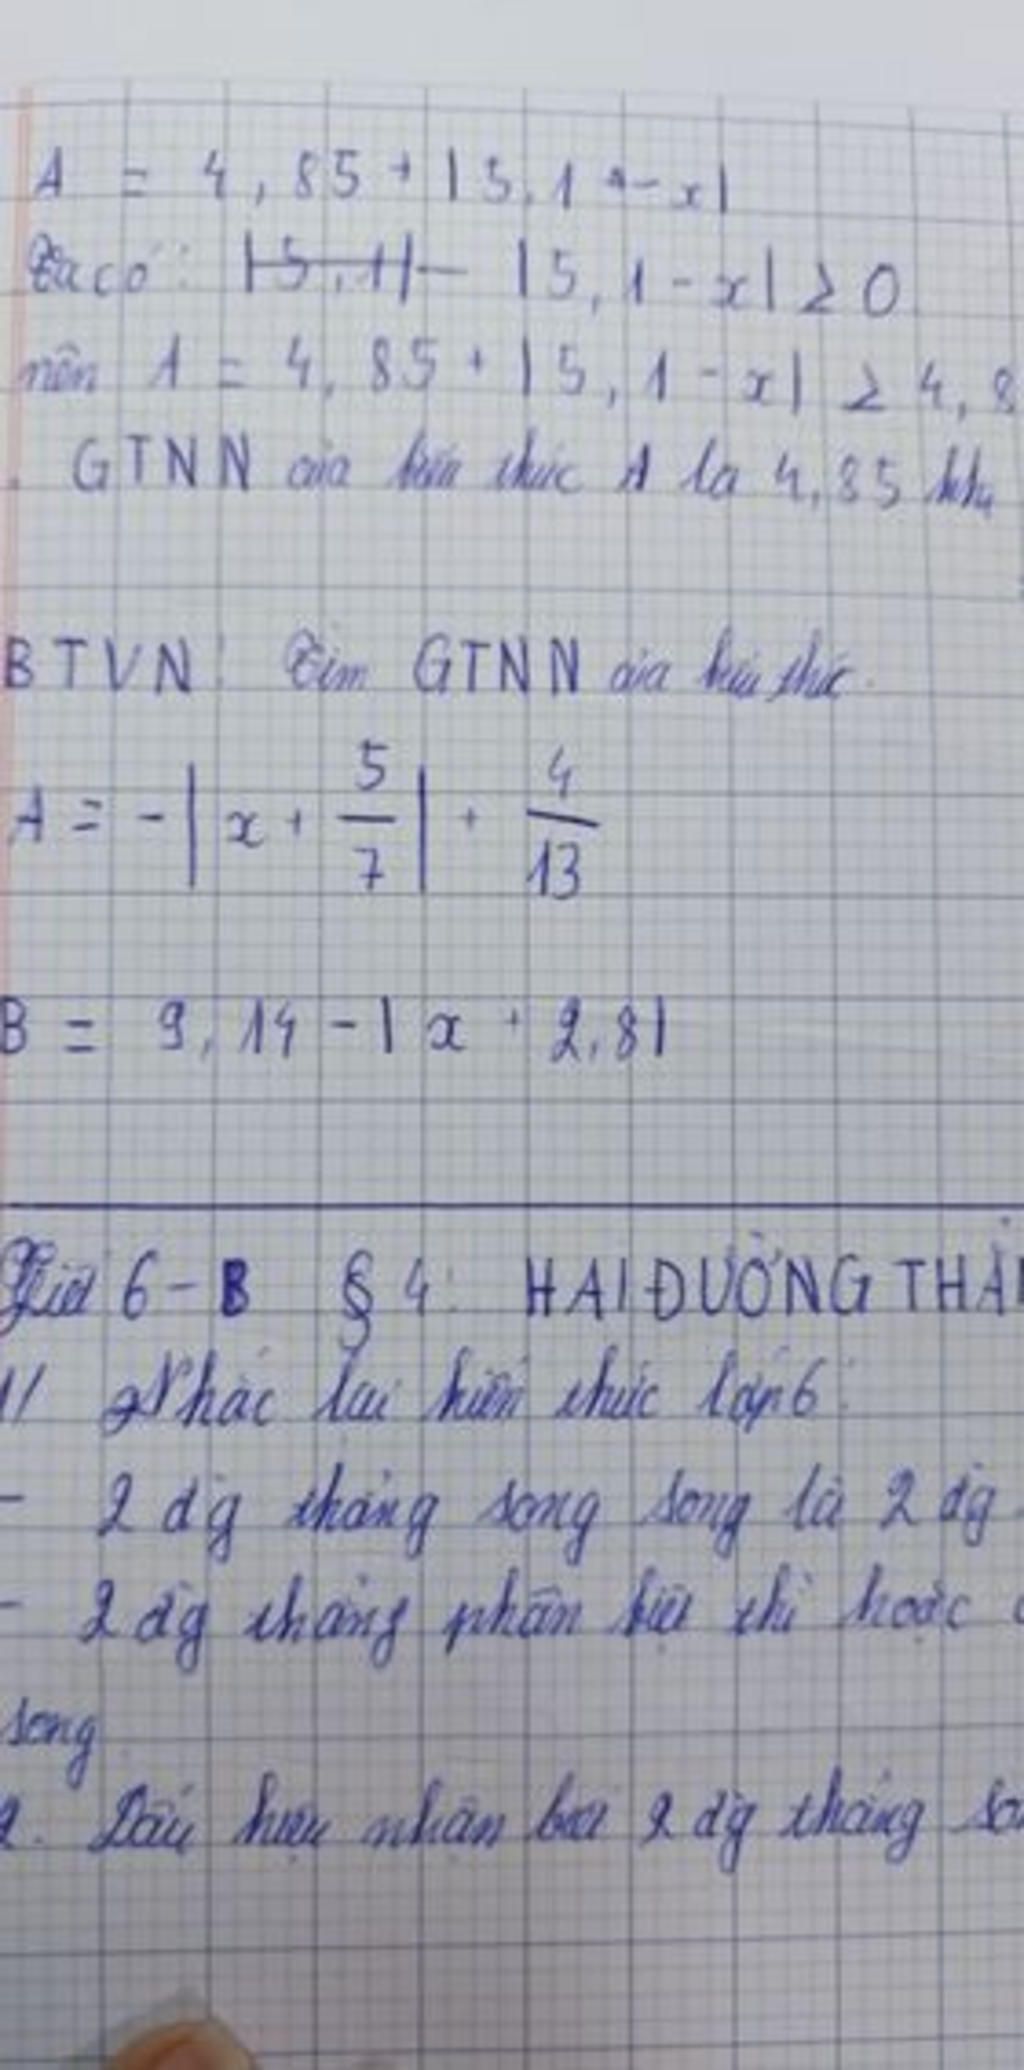 A = 4,85 + |5,1 - x|
Ta có: |5,1| - |5,1 - x| ≥ 0
nên A = 4,85 + |5,1 - x| ≥ 4,8
. GTNN của biểu thức A là 4,85 khi
BTVN: Tìm GTNN của biểu thức.
A = -|x + 5/7| + 4/13
B = 9,14 - |x + 2,8|
Tiết 6 - B § 4: HAI ĐƯỜNG THẲN
1/ Nhắc lại kiến thức lớp 6:
- 2 đg thẳng song song là 2 đg
- 2 đg thẳng phân biệt thì hoặc c
song
2. Dấu hiệu nhận biết 2 đg thẳng so